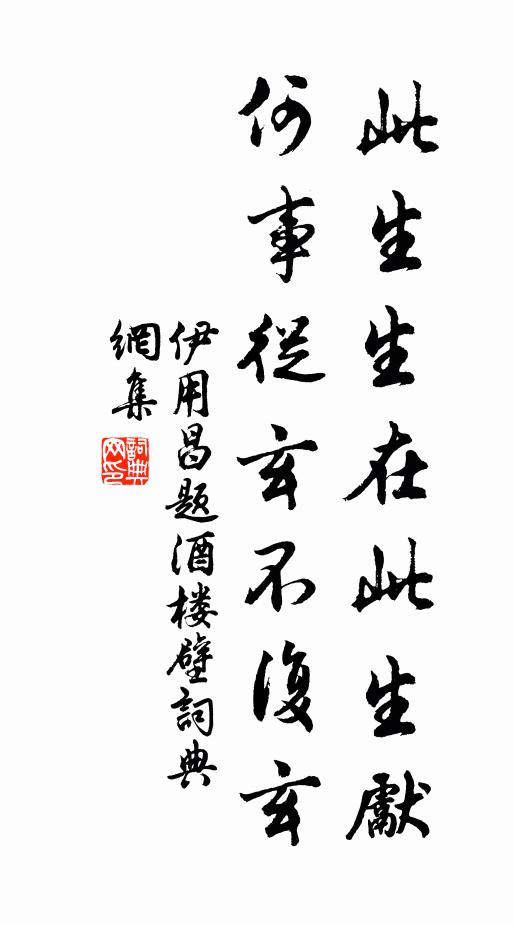 此生生在此生獻
何事從玄不復玄
伊用昌题酒楼壁詞典
網集
詞典
网印